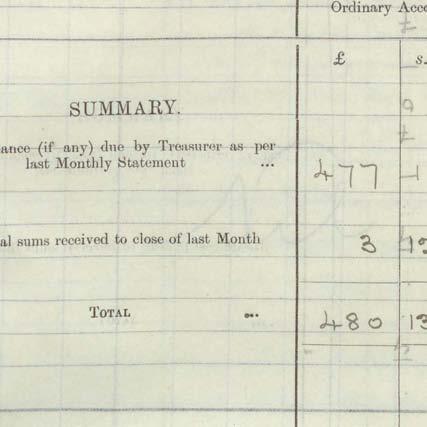 Ordinary Acco
£ s.
SUMMARY.
ance (if any) due by Treasurer as per
last Monthly Statement ... 477
al sums received to close of last Month 3
TOTAL ... 480 13